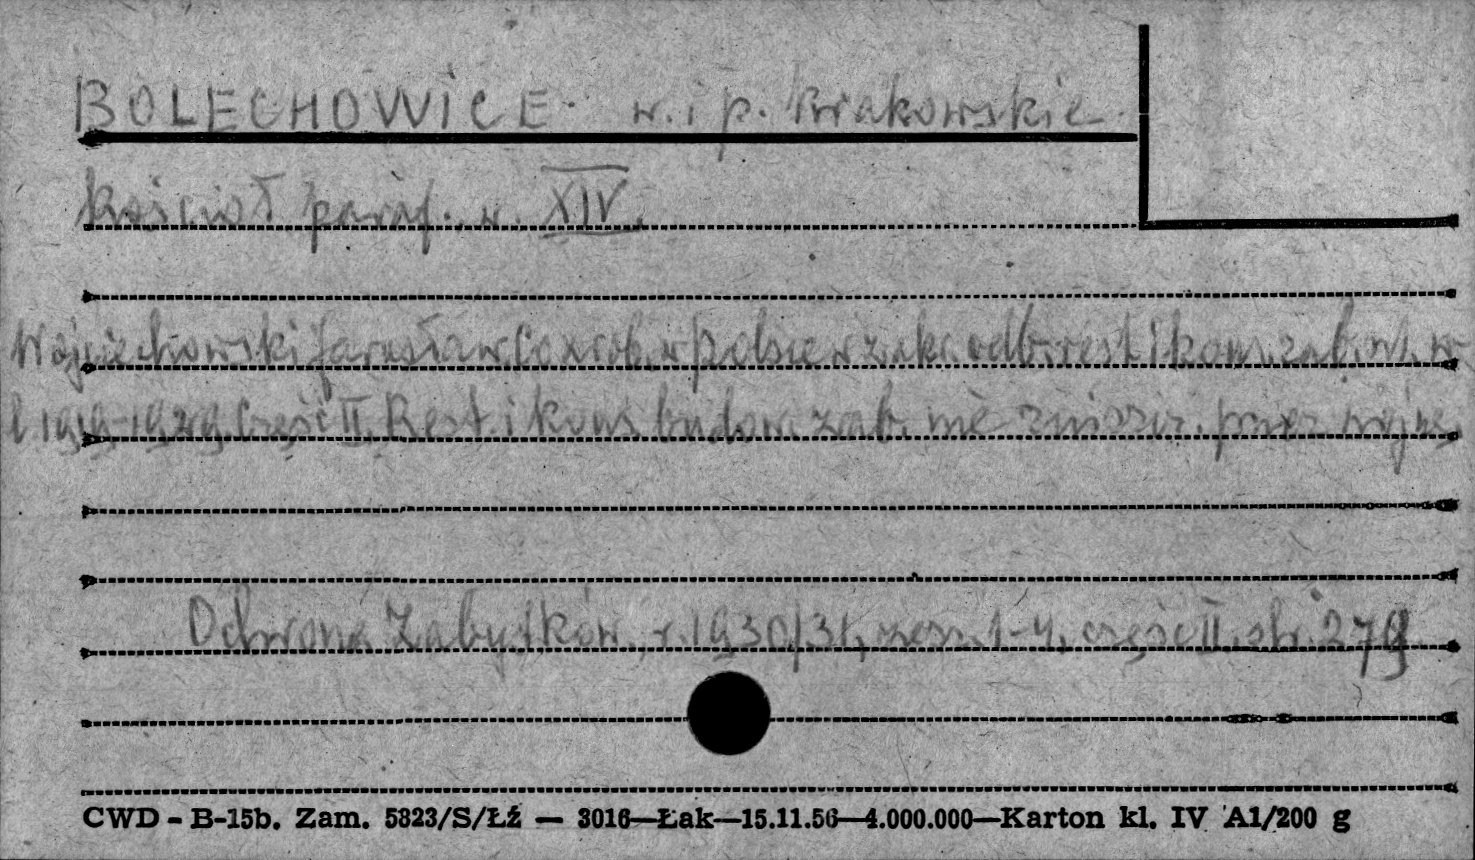 BOLECHOWICE w. i p. Krakowskie
Kościół paraf. w. XIV.
Wojciechowski Jarosław, Co zrob. w Polsce w zakr. odb. rest. i kons. zab. ost. w
l 1919-1929. Część II. Rest. i kons. budow. zab. nie zniszcz. przez wojnę.
Ochrona Zabytków, r. 1930/31, zesz. 1-4. część II. str. 279
CWD - B-15b. Zam. 5823/S/Łź — 3016—Łak—15.11.56—4.000.000—Karton kl. IV A1/200 g